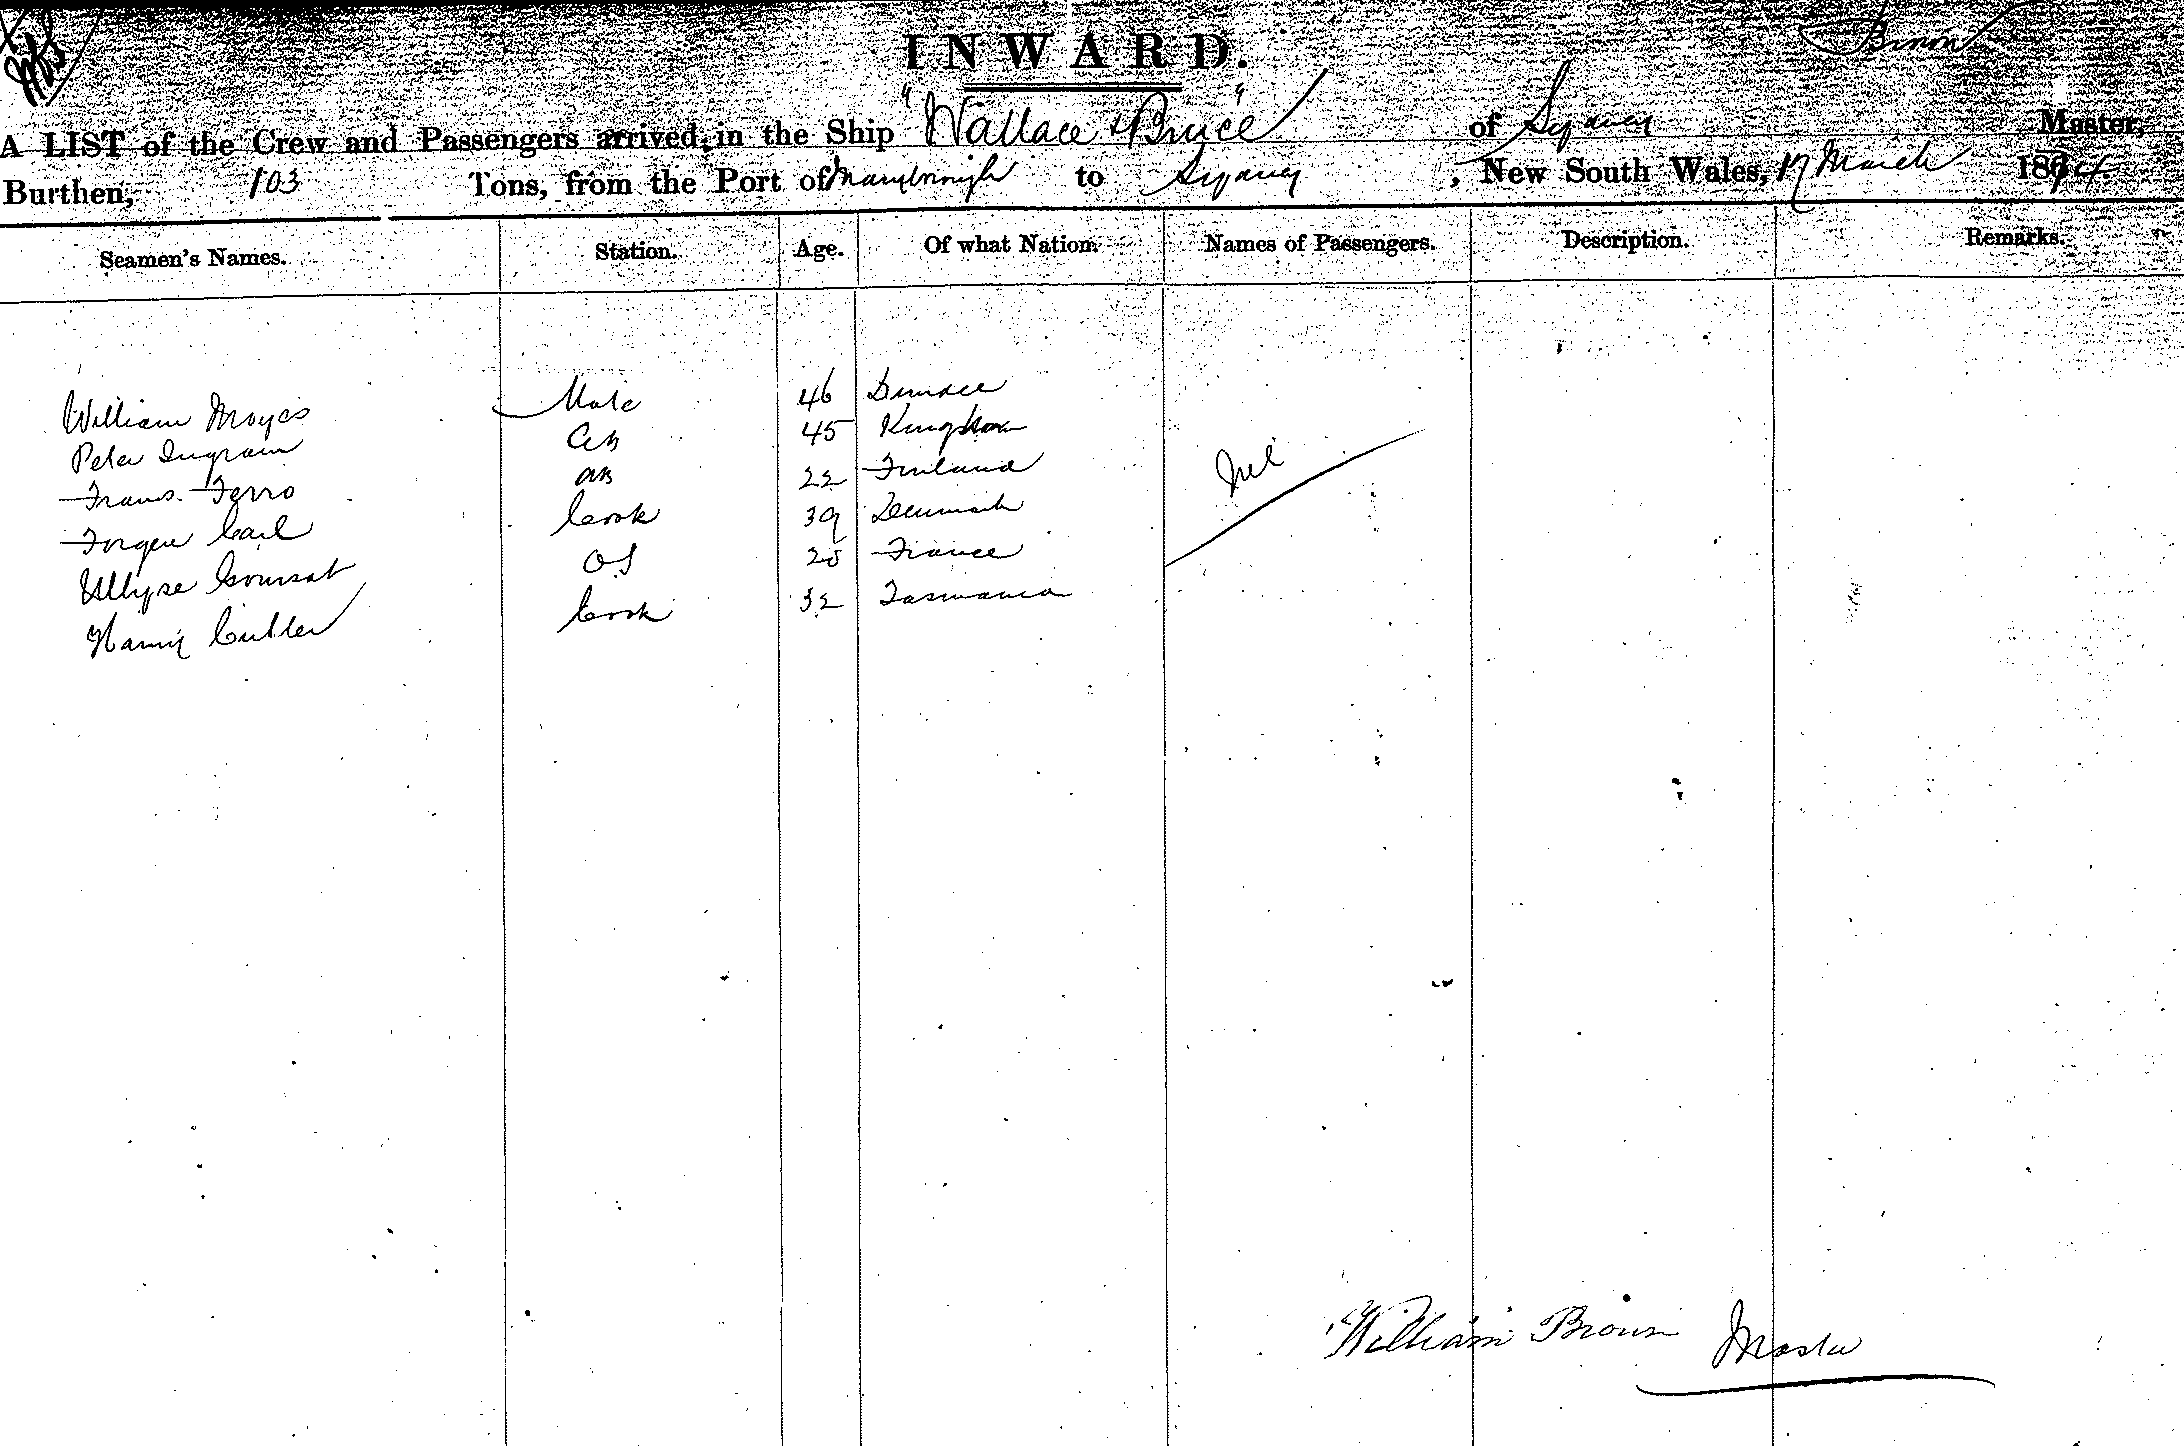 INWARD.
Brown
A LIST of the Crew and Passengers arrived in the Ship "Wallace & Bruce" of Sydney Master,
Burthen, 103 Tons, from the Port of Maryborough to Sydney, New South Wales, 17 March 1874
Seamen's Names. Station. Age. Of what Nation. Names of Passengers. Description. Remarks.
William Moyes Mate 46 Dundee
Peter Ingram AB 45 Kingston
Frans Ferro AB 22 Finland
Carl Cook 39 Denmark
Ullyse Goursat OS 28 France
Harry Cutler Cook 32 Tasmania
Nil
William Brown Master